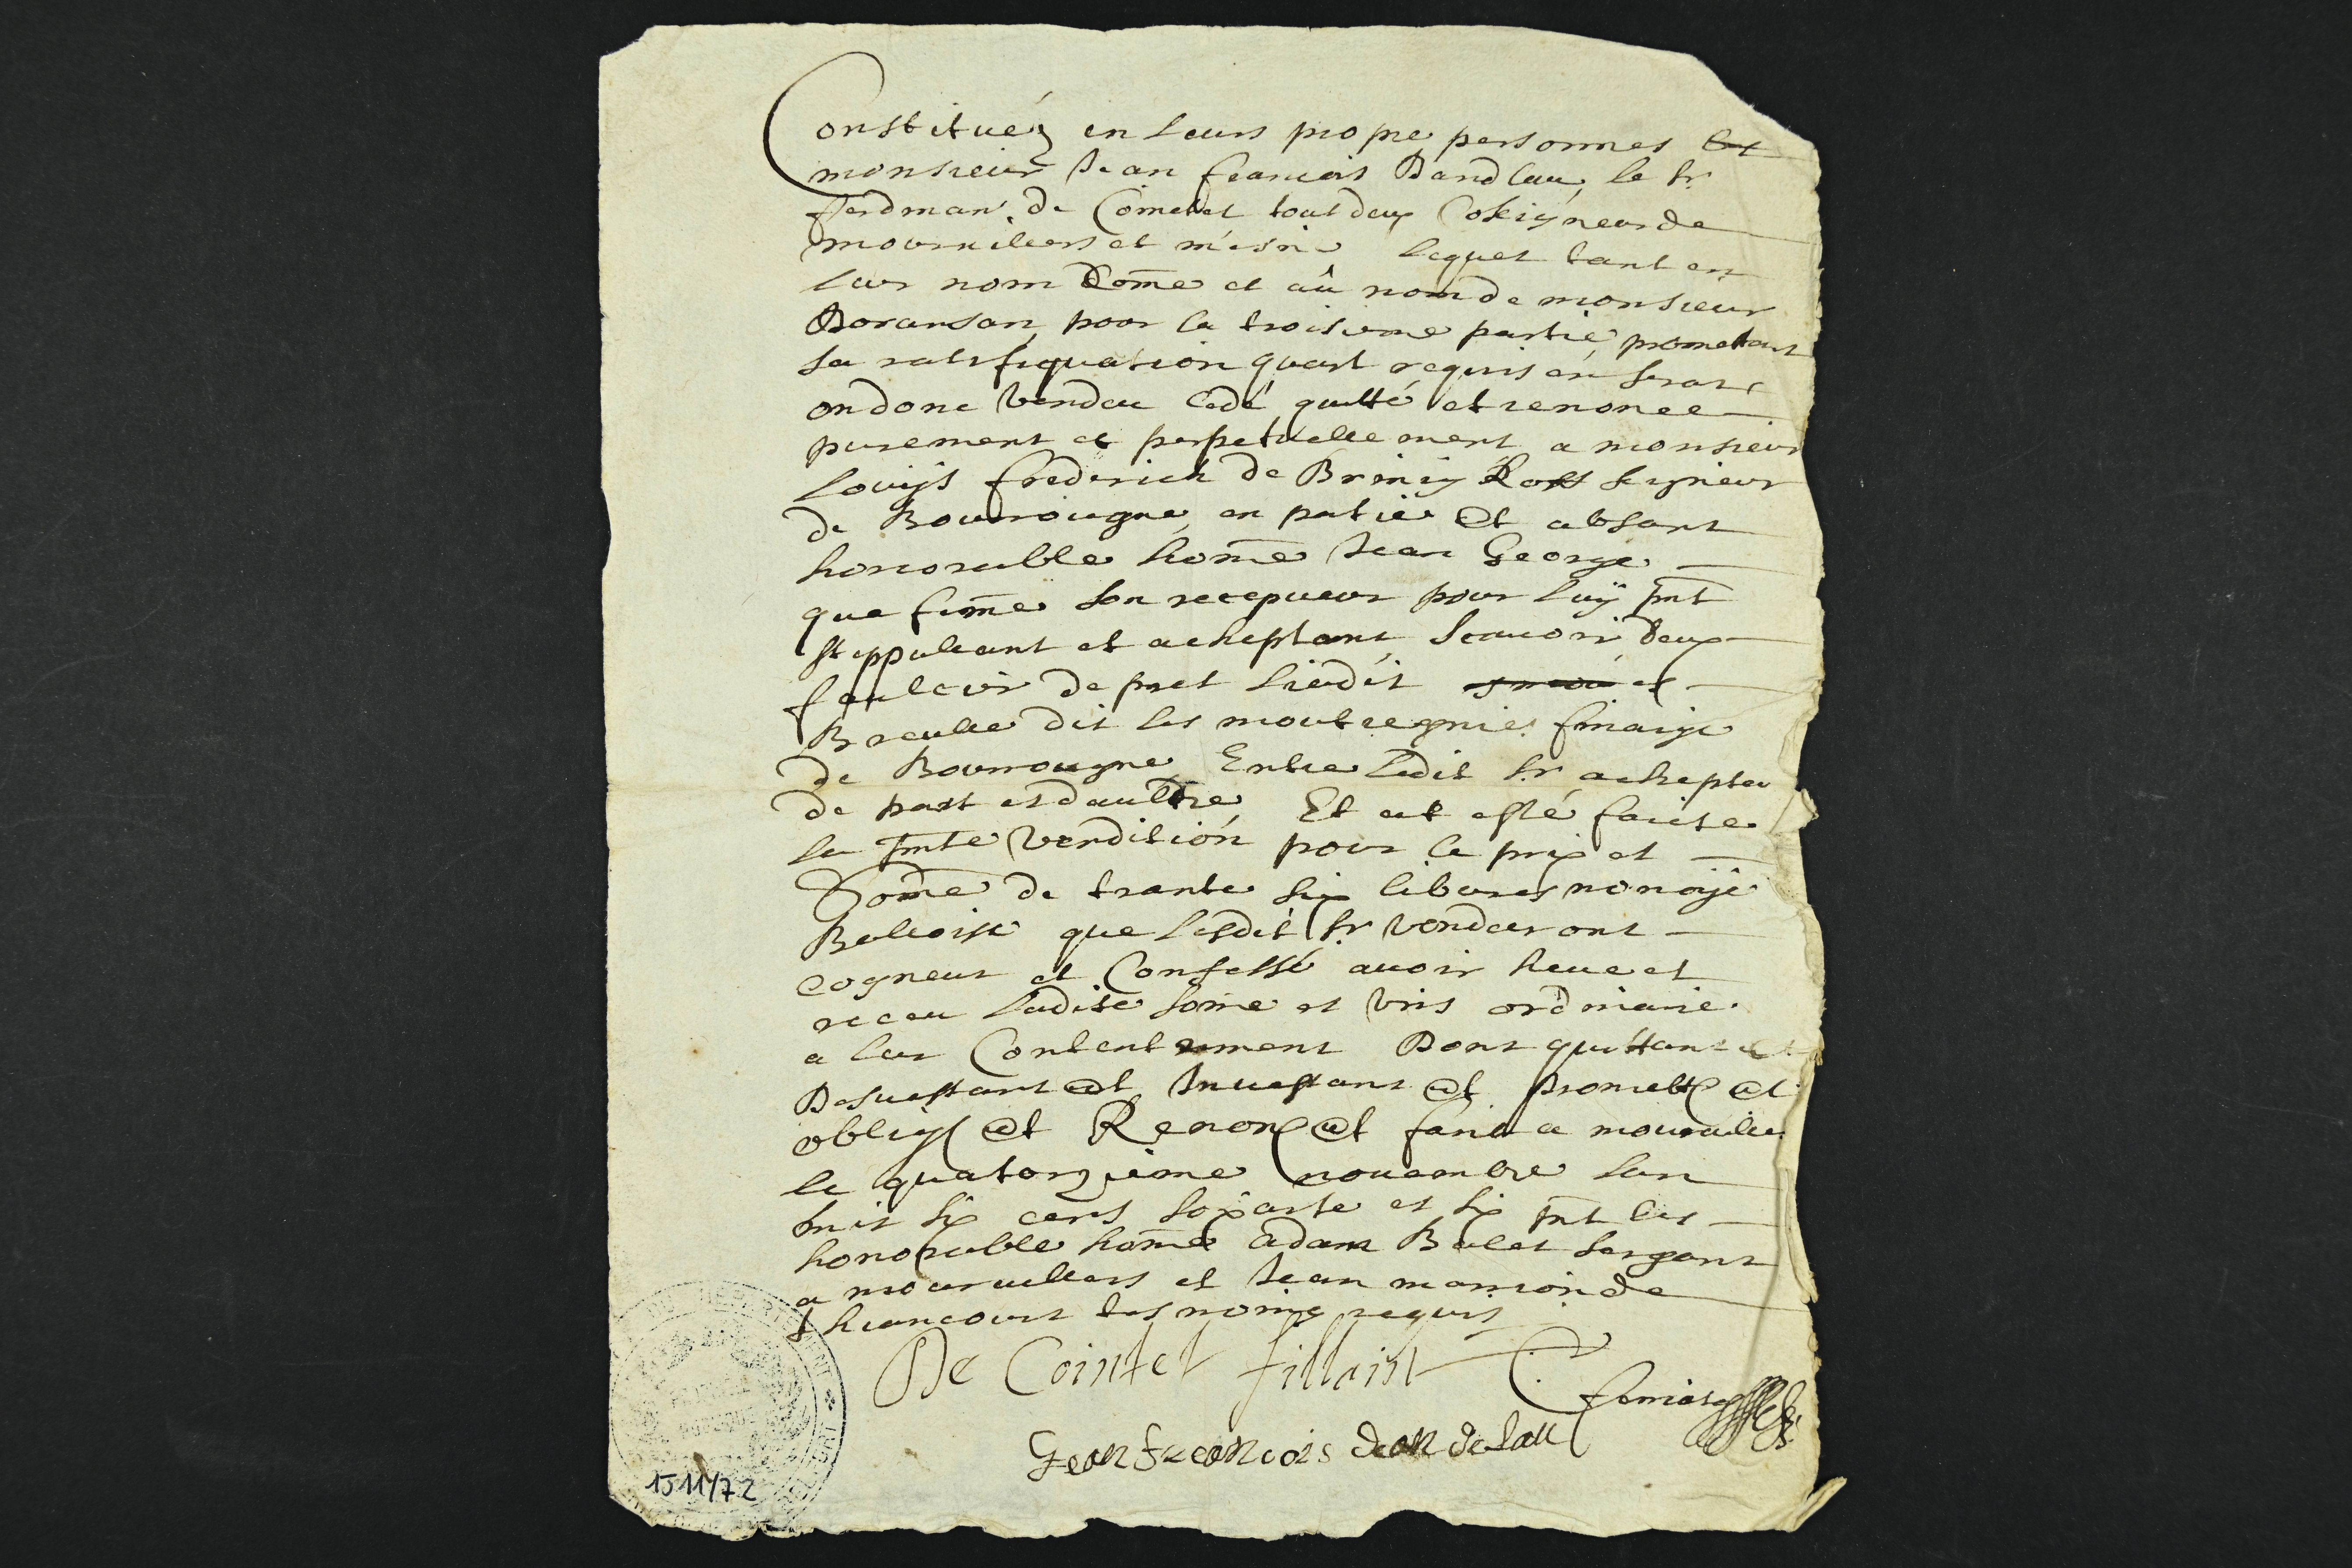 Constituéz en leurs propre personnes
monsieur Jean francois Dandlau, le sr
ferdman de Cointet tout deux Coseigneur de
mourvilers et mesire lequel tant en
leur nom Come et aû nom de monsieur
pour la troisieme partie promettant
sa ratifiquation quant requis en serat
on donc vendu cedé quitté et renoncé
purement et perpetuellement a monsieur
Louÿs frederich de Seigneur
de Bourougne en patie Et absant
honorable home Jean George
que son recepueur pour luÿ pnt
stippuleant et acheptant Scauoir deux
faulcur de pret liedit
Breulle dit les finaige
de Bourougne Entre ledit sr achepteu
de part et daultre Et at esté faicte
la pnte vendition pour le prix et
Some de trante six libvres monoÿe
Baloise que lesdit sr vendeur ont
cogneut et Confessé auoir heue et
receu ladite some et vins ordinaire
a leur Contentement Dont quittant et
Desuestant et Inuestant et promett et
oblig et Renonc et faict a mouruiler
le quatorzieme nouembre lan
mil six cens soixante et six pnt les
honorable home Adam Balet sergant
a mouruillers et Jean monnin de
thiancourt tesmoing requis
De Cointet fillaist
Gean francois dean delau
1J 11/72